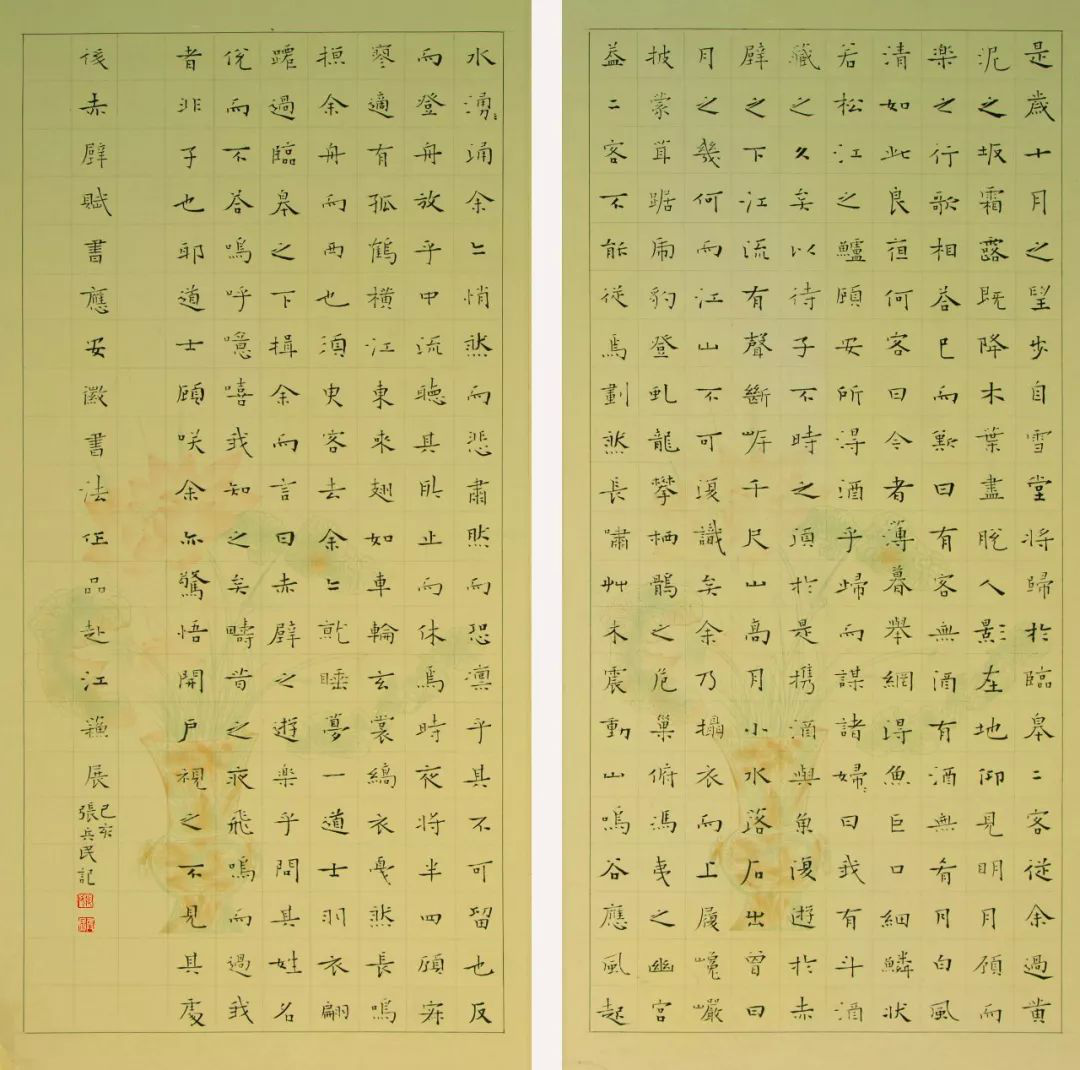 是歲十月之望步自雪堂將歸於臨皋二客從余過黄
泥之坂霜露既降木葉盡脱人影在地仰見明月顧而
樂之行歌相答已而歎曰有客無酒有酒無肴月白風
清如此良夜何客曰今者薄暮舉網得魚巨口細鱗狀
若松江之鱸顧安所得酒乎歸而謀諸婦〻曰我有斗酒
藏之久矣以待子不時之須於是携酒與魚復遊於赤
壁之下江流有聲斷岸千尺山高月小水落石出曾日
月之幾何而江山不可復識矣余乃攝衣而上履巉巖
披蒙茸踞虎豹登虬龍攀栖鶻之危巢俯馮夷之幽宫
益二客不能從焉劃然長嘯艸木震動山鳴谷應風起
水湧〻涌余〻悄然而悲肅然而恐凛乎其不可留也反
而登舟放乎中流聽其所止而休焉時夜將半四顧寂
寥適有孤鶴横江東來翅如車輪玄裳縞衣戛然長鳴
掠余舟而西也須臾客去余〻就睡夢一道士羽衣翩
躚過臨皋之下揖余而言曰赤壁之遊樂乎問其姓名
俛而不答嗚呼噫嘻我知之矣疇昔之夜飛鳴而過我
者非子也耶道士顧咲余亦驚悟開户視之不見其處
後赤壁賦書應安徽書法作品赴江蘓展
己亥
張兵民記